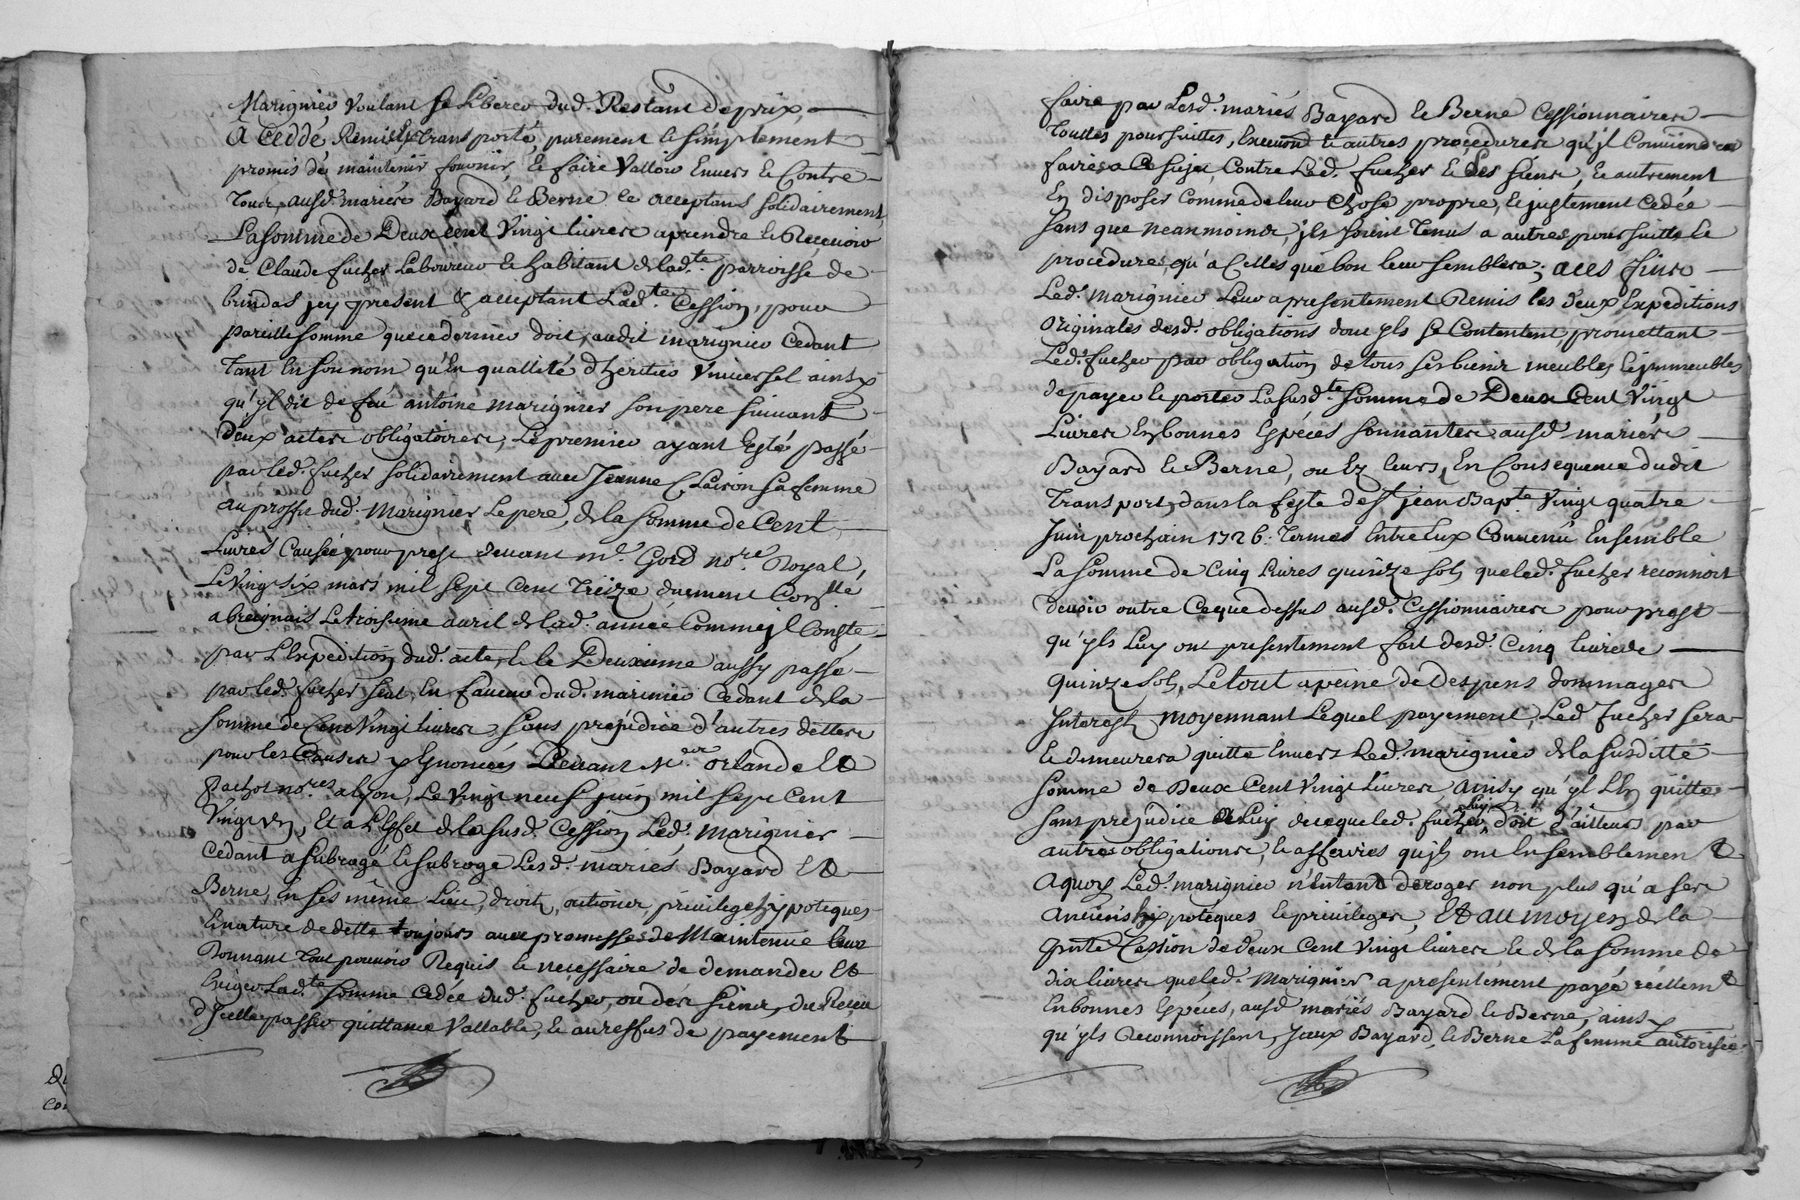 Marignier voulant se Liberer dud. Restant de prix,
A Ceddé, Remis Et transporté, purement et simplement
promis de maintenir fournir, et faire Valloir Envers et Contre
Tous, ausd. mariés Bayard et Berne et acceptans solidairement,
La somme de Deux Cent Vingt livres aprendre et Recevoir
de Claude fucher Laboureur et habitant de lad.te parroisse de
brindas jcy present & acceptant Lad.te Cession, pour
pareille somme que ce dernier doit, audit marignier Cedant
Tant En son nom qu'En quallité d'héritier Universel ainsy
qu'yl dit de feu antoine marignier son pere suivant
Deux actes obligatoires, Le premier ayant Esté passé
par led. fucher solidairement avec Jeanne Claison sa femme
au proffit dud. Marignier Le pere, de la somme de Cent
Livres Causée pour prest devant m.e Gord no.re Royal,
Le Vingt six mars mil sept Cent Treize duement Con.llé
a breignais Le troisieme avril de lad. année Comme jl Conste
par L'Expedition dud. acte, et le Deuxieme aussy passé
par led. fucher seul, En faveur dud. marinier Cedant de la
somme de Cent Vingt livres, sans prejudice d'autres dettes
pour les Causes y Enoncées Devant M.es orlande Et
Pachot no.res alyon, Le Vingt neuf juin mil sept Cent
Vingt Un, Et a L'Effet de la susd. Cession Led. Marignier
Cedant a subrogé et subroge Lesd. mariés Bayard Et
Berne, En ses même Lieu, droits, actions, privilege, hypoteques
Et nature de dette toujours avec promesses de Maintenue leur
Donnant Tout pouvoir Requis et necessaire de demander Et
Exiger Lad.te somme Cedée dud. fucher, ou des siens, du Receu
d'Jcelle passer quittance Vallable, et au reffus de payement
faire par Lesd. mariés Bayard et Berne Cessionnaires
Touttes poursuittes, Execution et autres procedures qu'yl Conviendra
faire a Ce sujet, Contre Led. fucher et Les siens, et autrement
En disposer Comme de leur Chose propre, et justement Cedée
sans que neanmoins, jls soient Tenus a autres poursuitte Et
procedures, qu'a Celles que bon leur semblera; aces fins
Led. Marignier Leur a presentement Remis les deux Expeditions
Originales desd. obligations dont yls se Contentent, promettant
Led. fucher par obligation de tous ses biens meubles et jmmeubles
de payer et porter La susd.te somme de Deux Cent Vingt
Livres En bonnes Espéces sonnantes ausd. mariés
Bayard et Berne, ou Es leurs, En Consequence dudit
Transport, dans la feste de S.t jean Bap.te Vingt quatre
Juin prochain 1726. Termes Entre Eux Convenu Ensemble
La somme de Cinq Livres quinze sols que led. fucher reconnoit
devoir outre Ceque dessus ausd. Cessionnaires pour prest
qu'yls Luy ont presentement fait desd. Cinq livres
quinze sols, Le tout apeine de Despens dommages
Interests, moyennant Lequel payement, Led. fucher sera
Et demeurera quitte Envers Led. marignier de la susditte
somme de Deux Cent Vingt Livres ainsy qu'yl L'En quitte
sans prejudice a Luy de ceque led. fucher Luy doit d'ailleurs par
autres obligations, et affaires qu'jls ont Ensemblement
Aquoy Led. marignier n'Entend deroger non plus qu'a ses
Anciens hypoteques et privileges, Et au moyen de la
p.nte Cession de deux Cent Vingt livres et de la somme de
dix livres que led. Marignier a presentement payé réellem.t
En bonnes Espéces, ausd. mariés Bayard et Berne, ainsy
qu'yls Reconnoissent, jceux Bayard, et Berne La femme autorisée